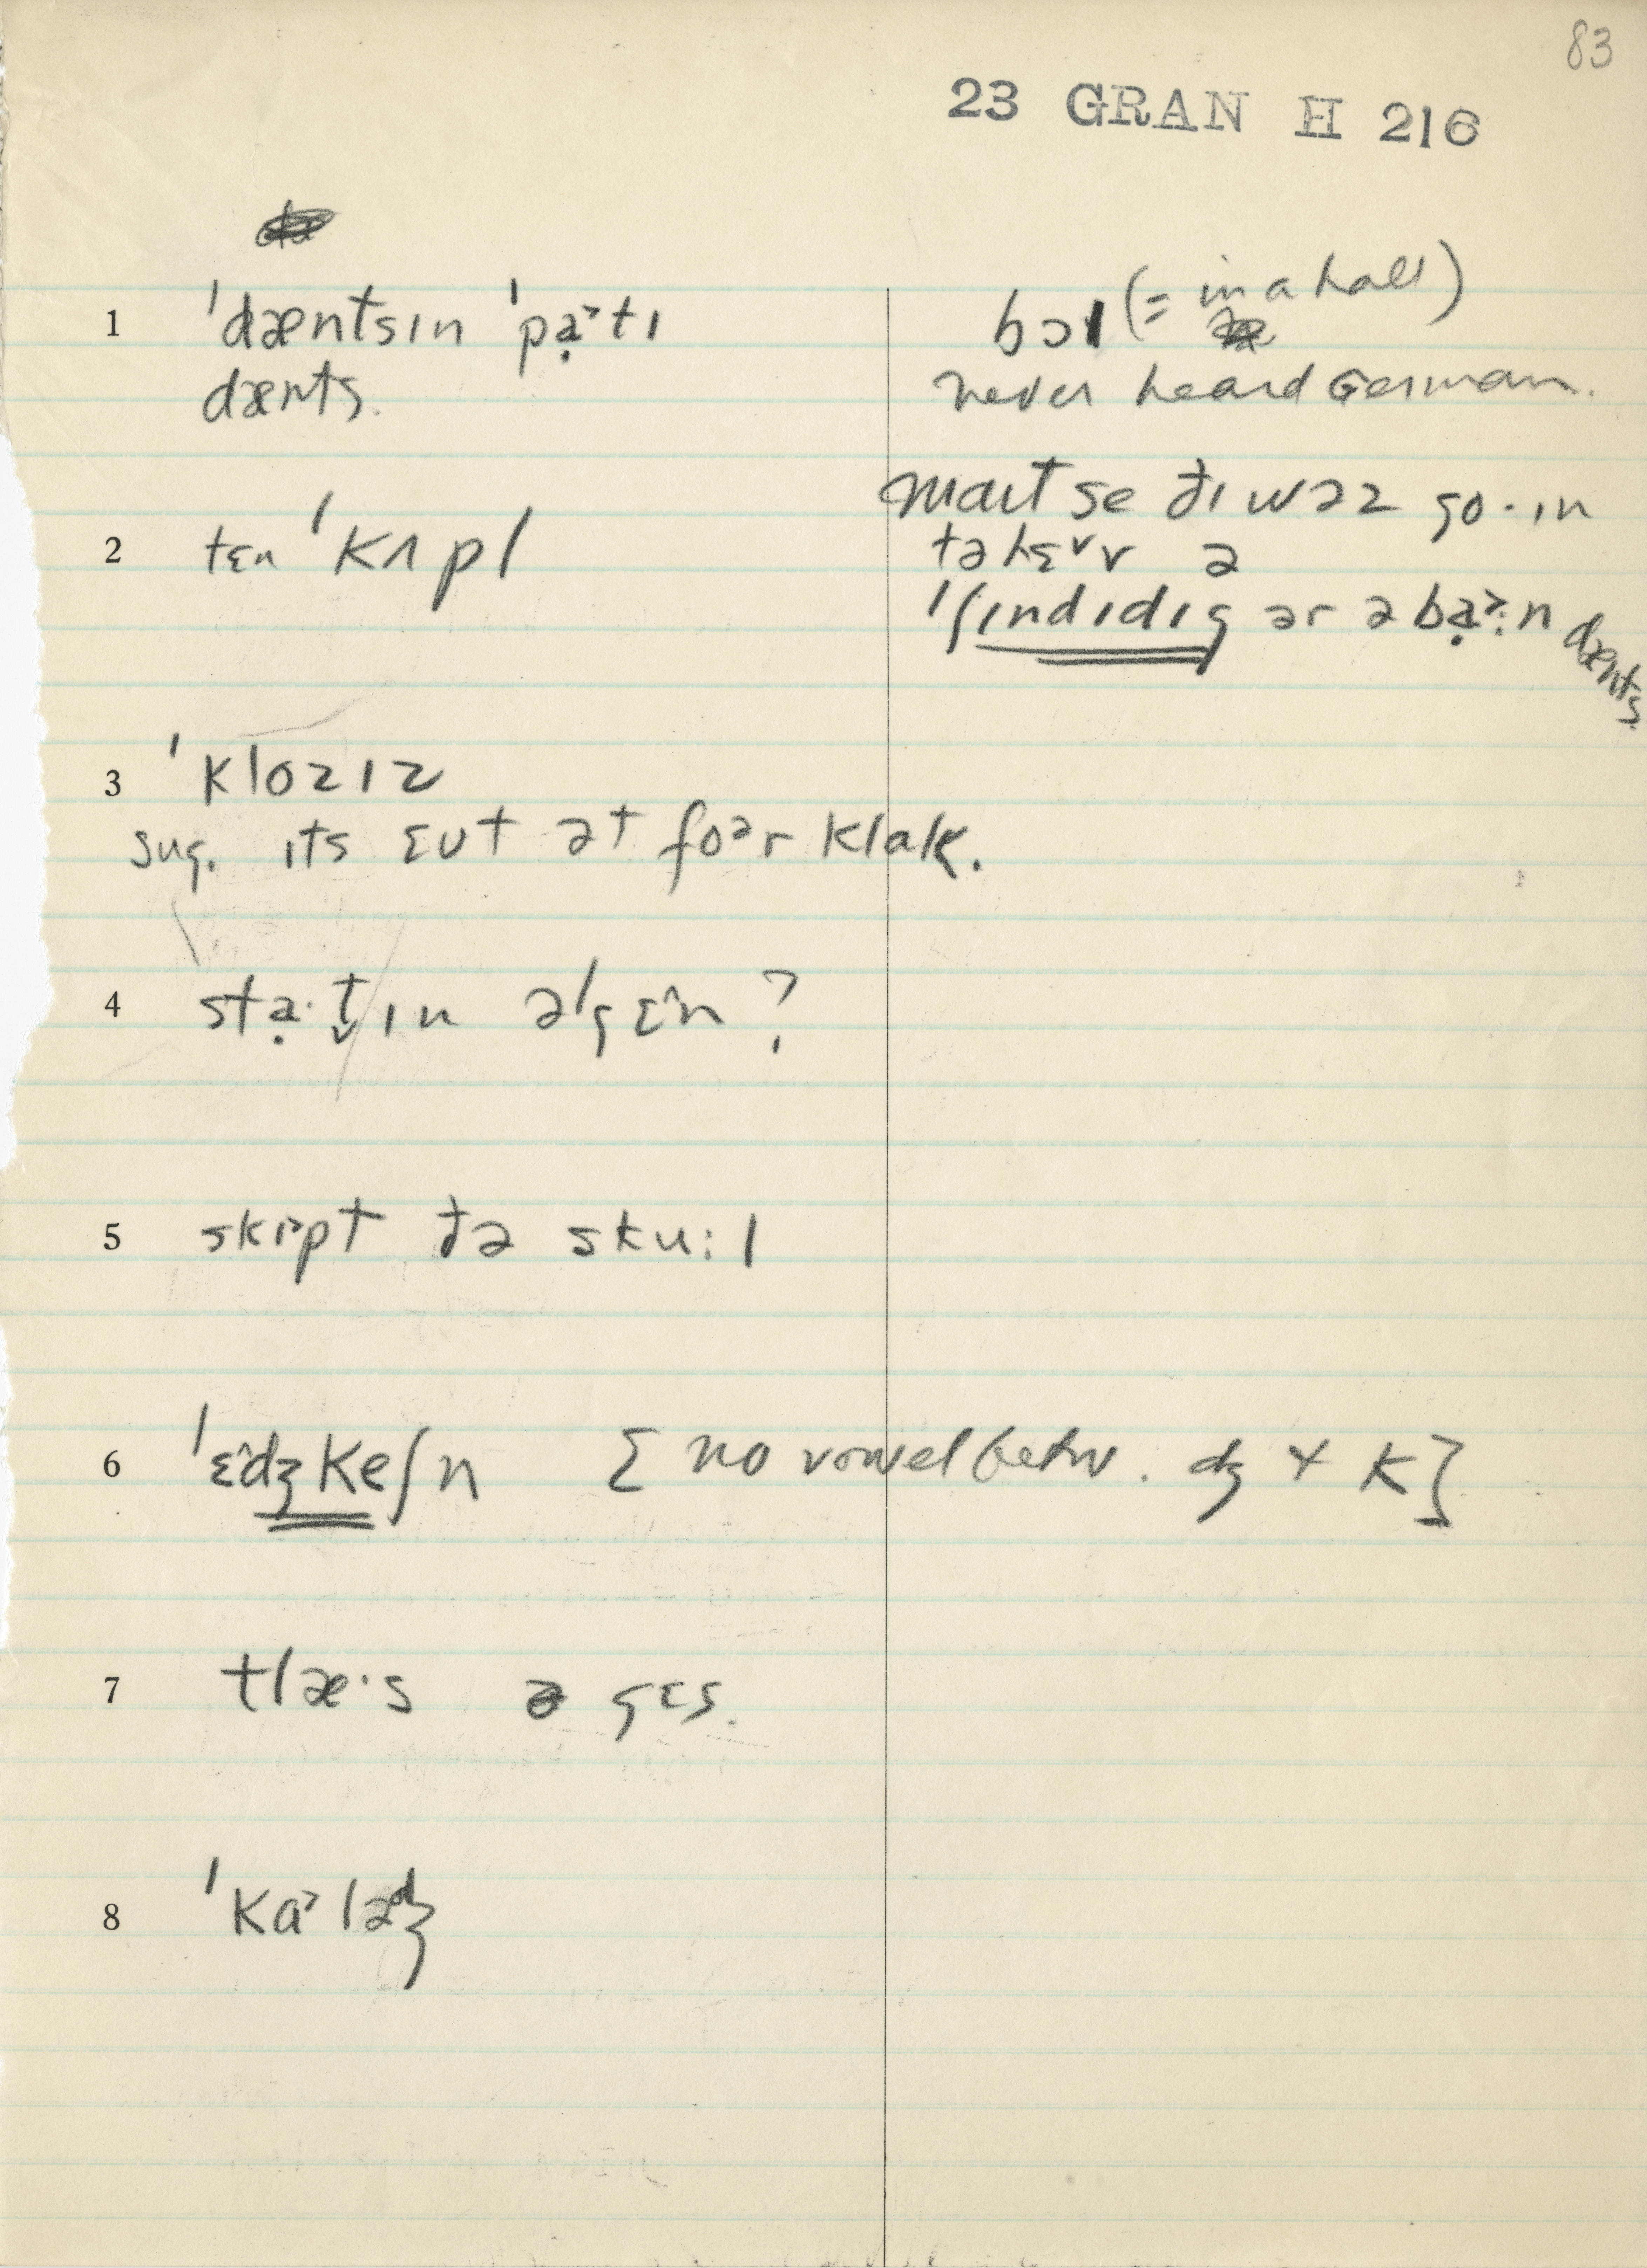 83
23 GRAN H 216
1 ˈdæntsɪn ˈpạ˃tɪ
dænts.
bɔl (= in a hall)
never heard German.
2 tɛn ˈkʌpl
maɪt se ðɪ wəz go·ɪn
tə hɛ˅v ə
ˈʃɪndɪdɪg ər ə bạ˃:n dænts
3 ˈklozɪz
sug. ɪts ɛʊt ət foər klɑk.
4 stạ·t̬ɪn əˈgɛ^n ?
5 skɪ˃pt ðə sku:l
6 ˈɛ^dʒkeʃn [no vowel betw. dʒ + k]
7 tlæ·s ə gɛs.
8 ˈkɑ˃lədʒ